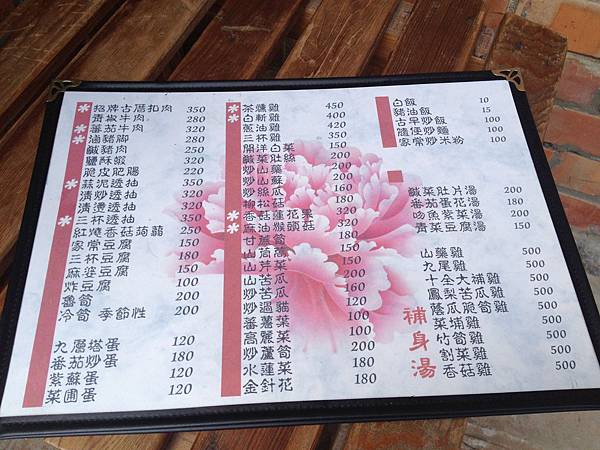 招牌古厝扣肉 350
青椒牛肉 280
蕃茄牛肉 320
滷豬腳 350
鹹豬肉 320
鹽酥蝦 320
脆皮肥腸 250
蒜泥透抽 350
清炒透抽 320
清燙透抽 320
三杯透抽 320
紅燒香菇蒟蒻 250
家常豆腐 150
三杯豆腐 200
麻婆豆腐 150
炸豆腐 100
魯筍 200
冷筍 季節性 200
九層塔蛋 120
番茄炒蛋 180
紫蘇蛋 120
菜圃蛋 120
茶燻雞 450
白斬雞 400
蔥油雞 420
三杯雞 350
開洋白菜 150
鹹菜肚絲 200
炒山藥 200
炒山蘇 200
炒絲瓜 160
柳松菇 180
香菇蓮花
麻油猴頭菇 320
甘蔗筍 200
山茼蒿
山芹菜
山苦瓜
炒苦瓜
炒過貓
蕃薯葉 100
高麗菜 150
炒蘆筍 200
水蓮 180
金針花 180
白飯 10
豬油飯 15
古早炒飯 100
隨便炒麵 100
家常炒米粉 100
鹹菜肚片湯 200
番茄蛋花湯 180
吻魚紫菜湯 200
青菜豆腐湯 150
補身湯
山藥雞 500
九尾雞 500
十全大補雞 500
鳳梨苦瓜雞 500
蔭瓜脆筍雞 500
菜埔雞 500
竹筍雞 500
割菜雞 500
香菇雞 500